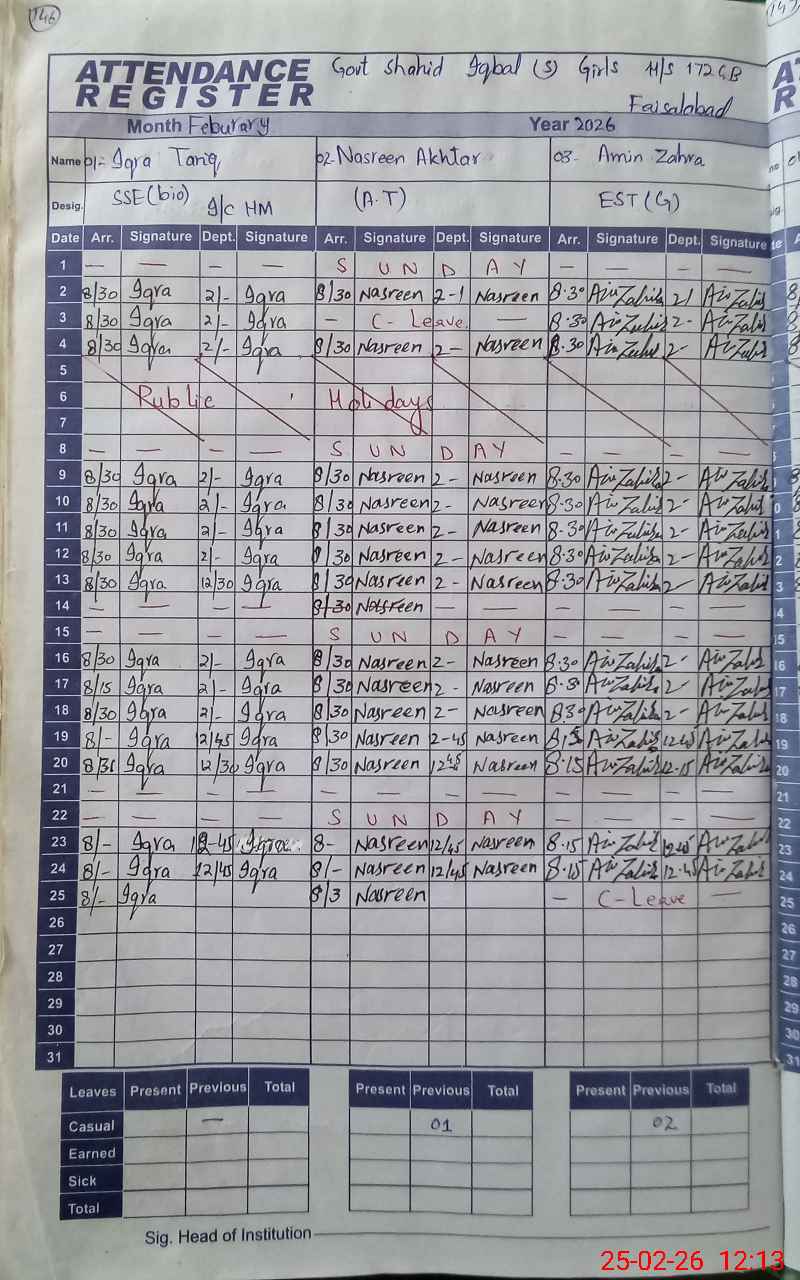 146
147
ATTENDANCE REGISTER
Govt Shahid Iqbal (S) Girls H/S 172 GB
Faisalabad
Month Feburary Year 2026
Name 01- Iqra Tariq 02- Nasreen Akhtar 03- Amin Zahra
Desig. SSE(bio) I/C HM (A.T) EST (G)
Date Arr. Signature Dept. Signature Arr. Signature Dept. Signature Arr. Signature Dept. Signature
1 — — — — S U N D A Y — — — —
2 8/30 Iqra 2/- Iqra 8/30 Nasreen 2-1 Nasreen 8.30 2/
3 8/30 Iqra 2/- Iqra — C- Leave — 8.30 2-
4 8/30 Iqra 2/- Iqra 8/30 Nasreen 2- Nasreen 8.30 2-
5
6 Public Holidays
7
8 — — — — S U N D A Y — — — —
9 8/30 Iqra 2/- Iqra 8/30 Nasreen 2- Nasreen 8.30 2-
10 8/30 Iqra 2/- Iqra 8/30 Nasreen 2- Nasreen 8.30 2-
11 8/30 Iqra 2/- Iqra 8/30 Nasreen 2- Nasreen 8.30 2-
12 8/30 Iqra 2/- Iqra 8/30 Nasreen 2- Nasreen 8.30 2-
13 8/30 Iqra 12/30 Iqra 8/30 Nasreen 2- Nasreen 8.30 2-
14 — — — — 8/30 Nasreen — — — — — —
15 — — — — S U N D A Y — — — —
16 8/30 Iqra 2/- Iqra 8/30 Nasreen 2- Nasreen 8.30 2-
17 8/15 Iqra 2/- Iqra 8/30 Nasreen 2- Nasreen 8.30 2-
18 8/30 Iqra 2/- Iqra 8/30 Nasreen 2- Nasreen 8.30 2-
19 8/- Iqra 12/45 Iqra 8/30 Nasreen 2-45 Nasreen 8.15 12.45
20 8/30 Iqra 12/30 Iqra 8/30 Nasreen 12 45 Nasreen 8.15 12.15
21 — — — — — — — — — — — —
22 — — — — S U N D A Y — — — —
23 8/- Iqra 12-45 Iqra 8- Nasreen 12/45 Nasreen 8.15 12.45
24 8/- Iqra 12/45 Iqra 8/- Nasreen 12/45 Nasreen 8.15 12.45
25 8/- Iqra 8/3 Nasreen — C-Leave —
26
27
28
29
30
31
Leaves Present Previous Total Present Previous Total Present Previous Total
Casual — 01 02
Earned
Sick
Total
Sig. Head of Institution
25-02-26 12:13